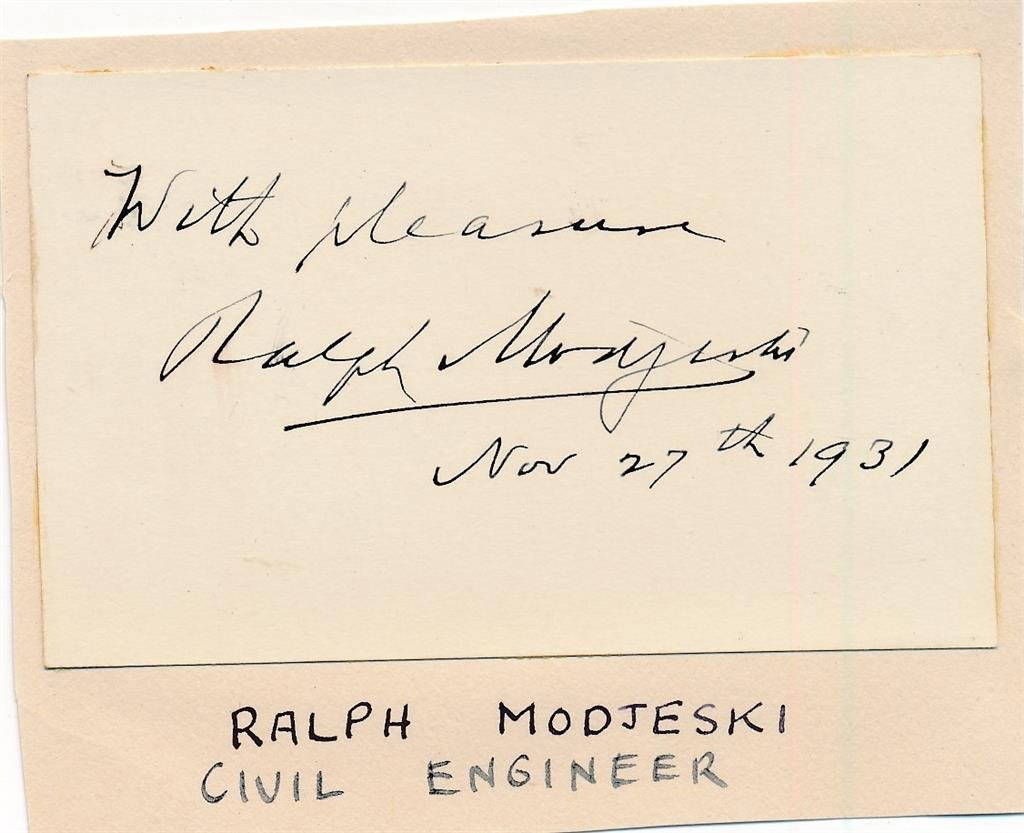 With pleasure
Ralph Modjeski
Nov 27th 1931
RALPH MODJESKI
CIVIL ENGINEER